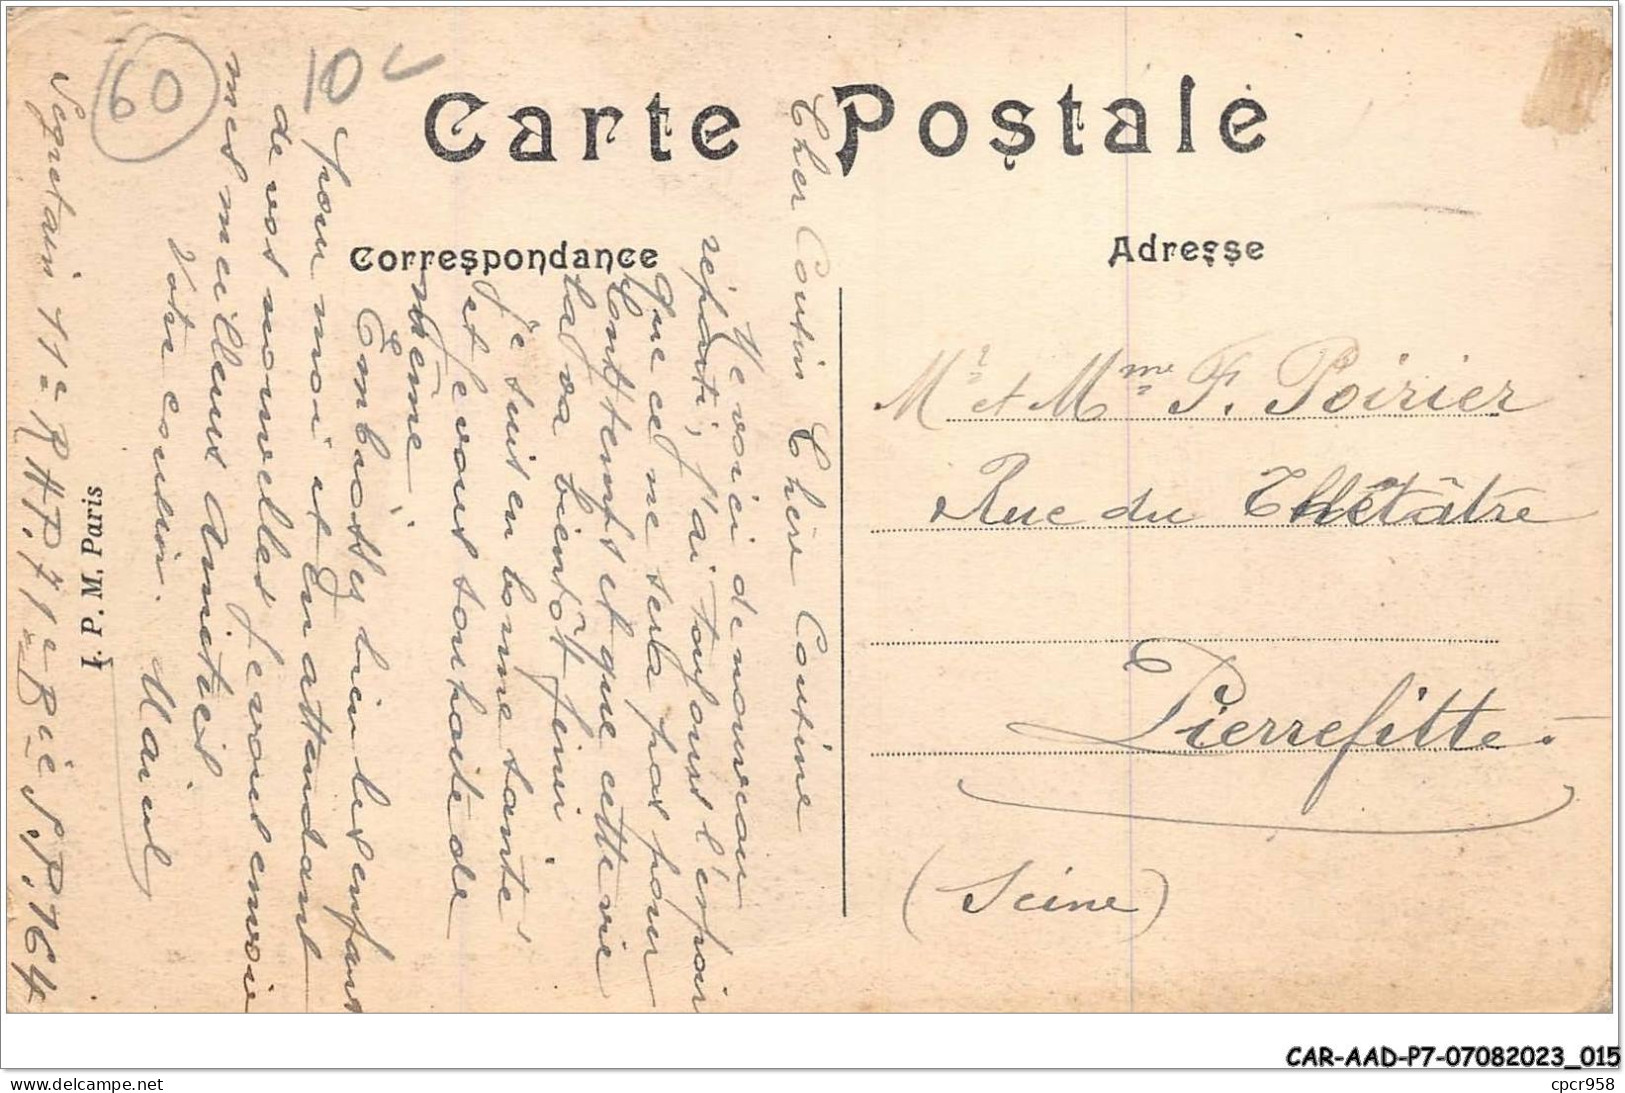 Carte Postale
Correspondance
Adresse
60
10
Cher Cousin Chère Cousine
Me voici de nouveau
réparti, j'ai toujours l'éspoir
que ce ne sera pas pour
longtemps et que cette vie
là va bientôt finir
Je suis en bonne santé
et je vous souhaite de
même
Embrassez bien les enfants
pour moi et En attendant
de vos nouvelles je vous envoie
mes meilleurs Amitiés
Votre cousin.
11e R.A.P. 71e Bie S.P. 164
I. P. M. Paris
Mr et Mme F. Poirier
Rue du Théâtre
Pierrefitte.
(Seine)
CAR-AAD-P7-07082023_015
Delcampe.net
cpcr958